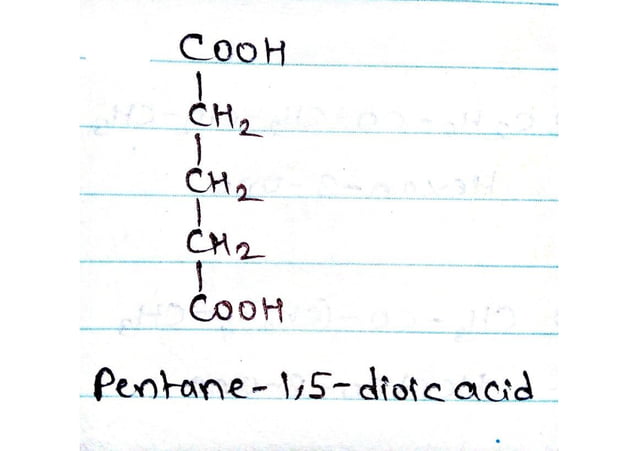 COOH
|
CH2
|
CH2
|
CH2
|
COOH
Pentane-1,5-dioic acid